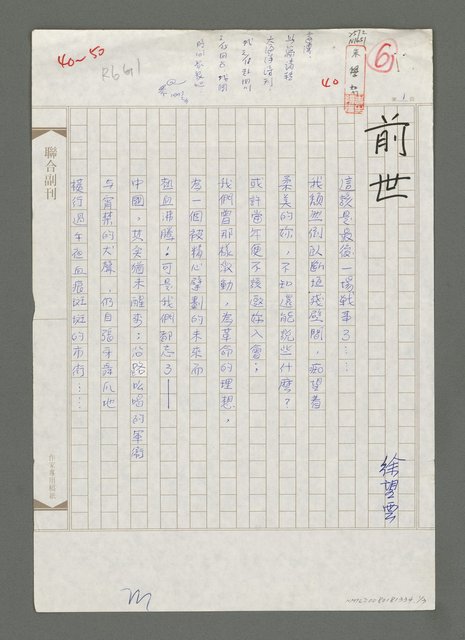 前世
徐望雲
這該是最後一場戰事了……
我頹然倒臥斷垣殘壁間，痴望着
柔美的妳，不知還能說些什麼？
或許當年便不該邀妳入會；
我們曾那樣激動，為革命的理想，
為一個被精心擘劃的未來而
熱血沸騰！可是我們都忘了——
中國，其實猶未醒來；沿路吆喝的軍衛
与宵禁的犬聲，仍自張牙舞爪地
橫行過午夜血痕斑斑的市街……
聯合副刊
作家專用稿紙
第1頁
6
40
40~50
R661
NMTL20080181994 1/3